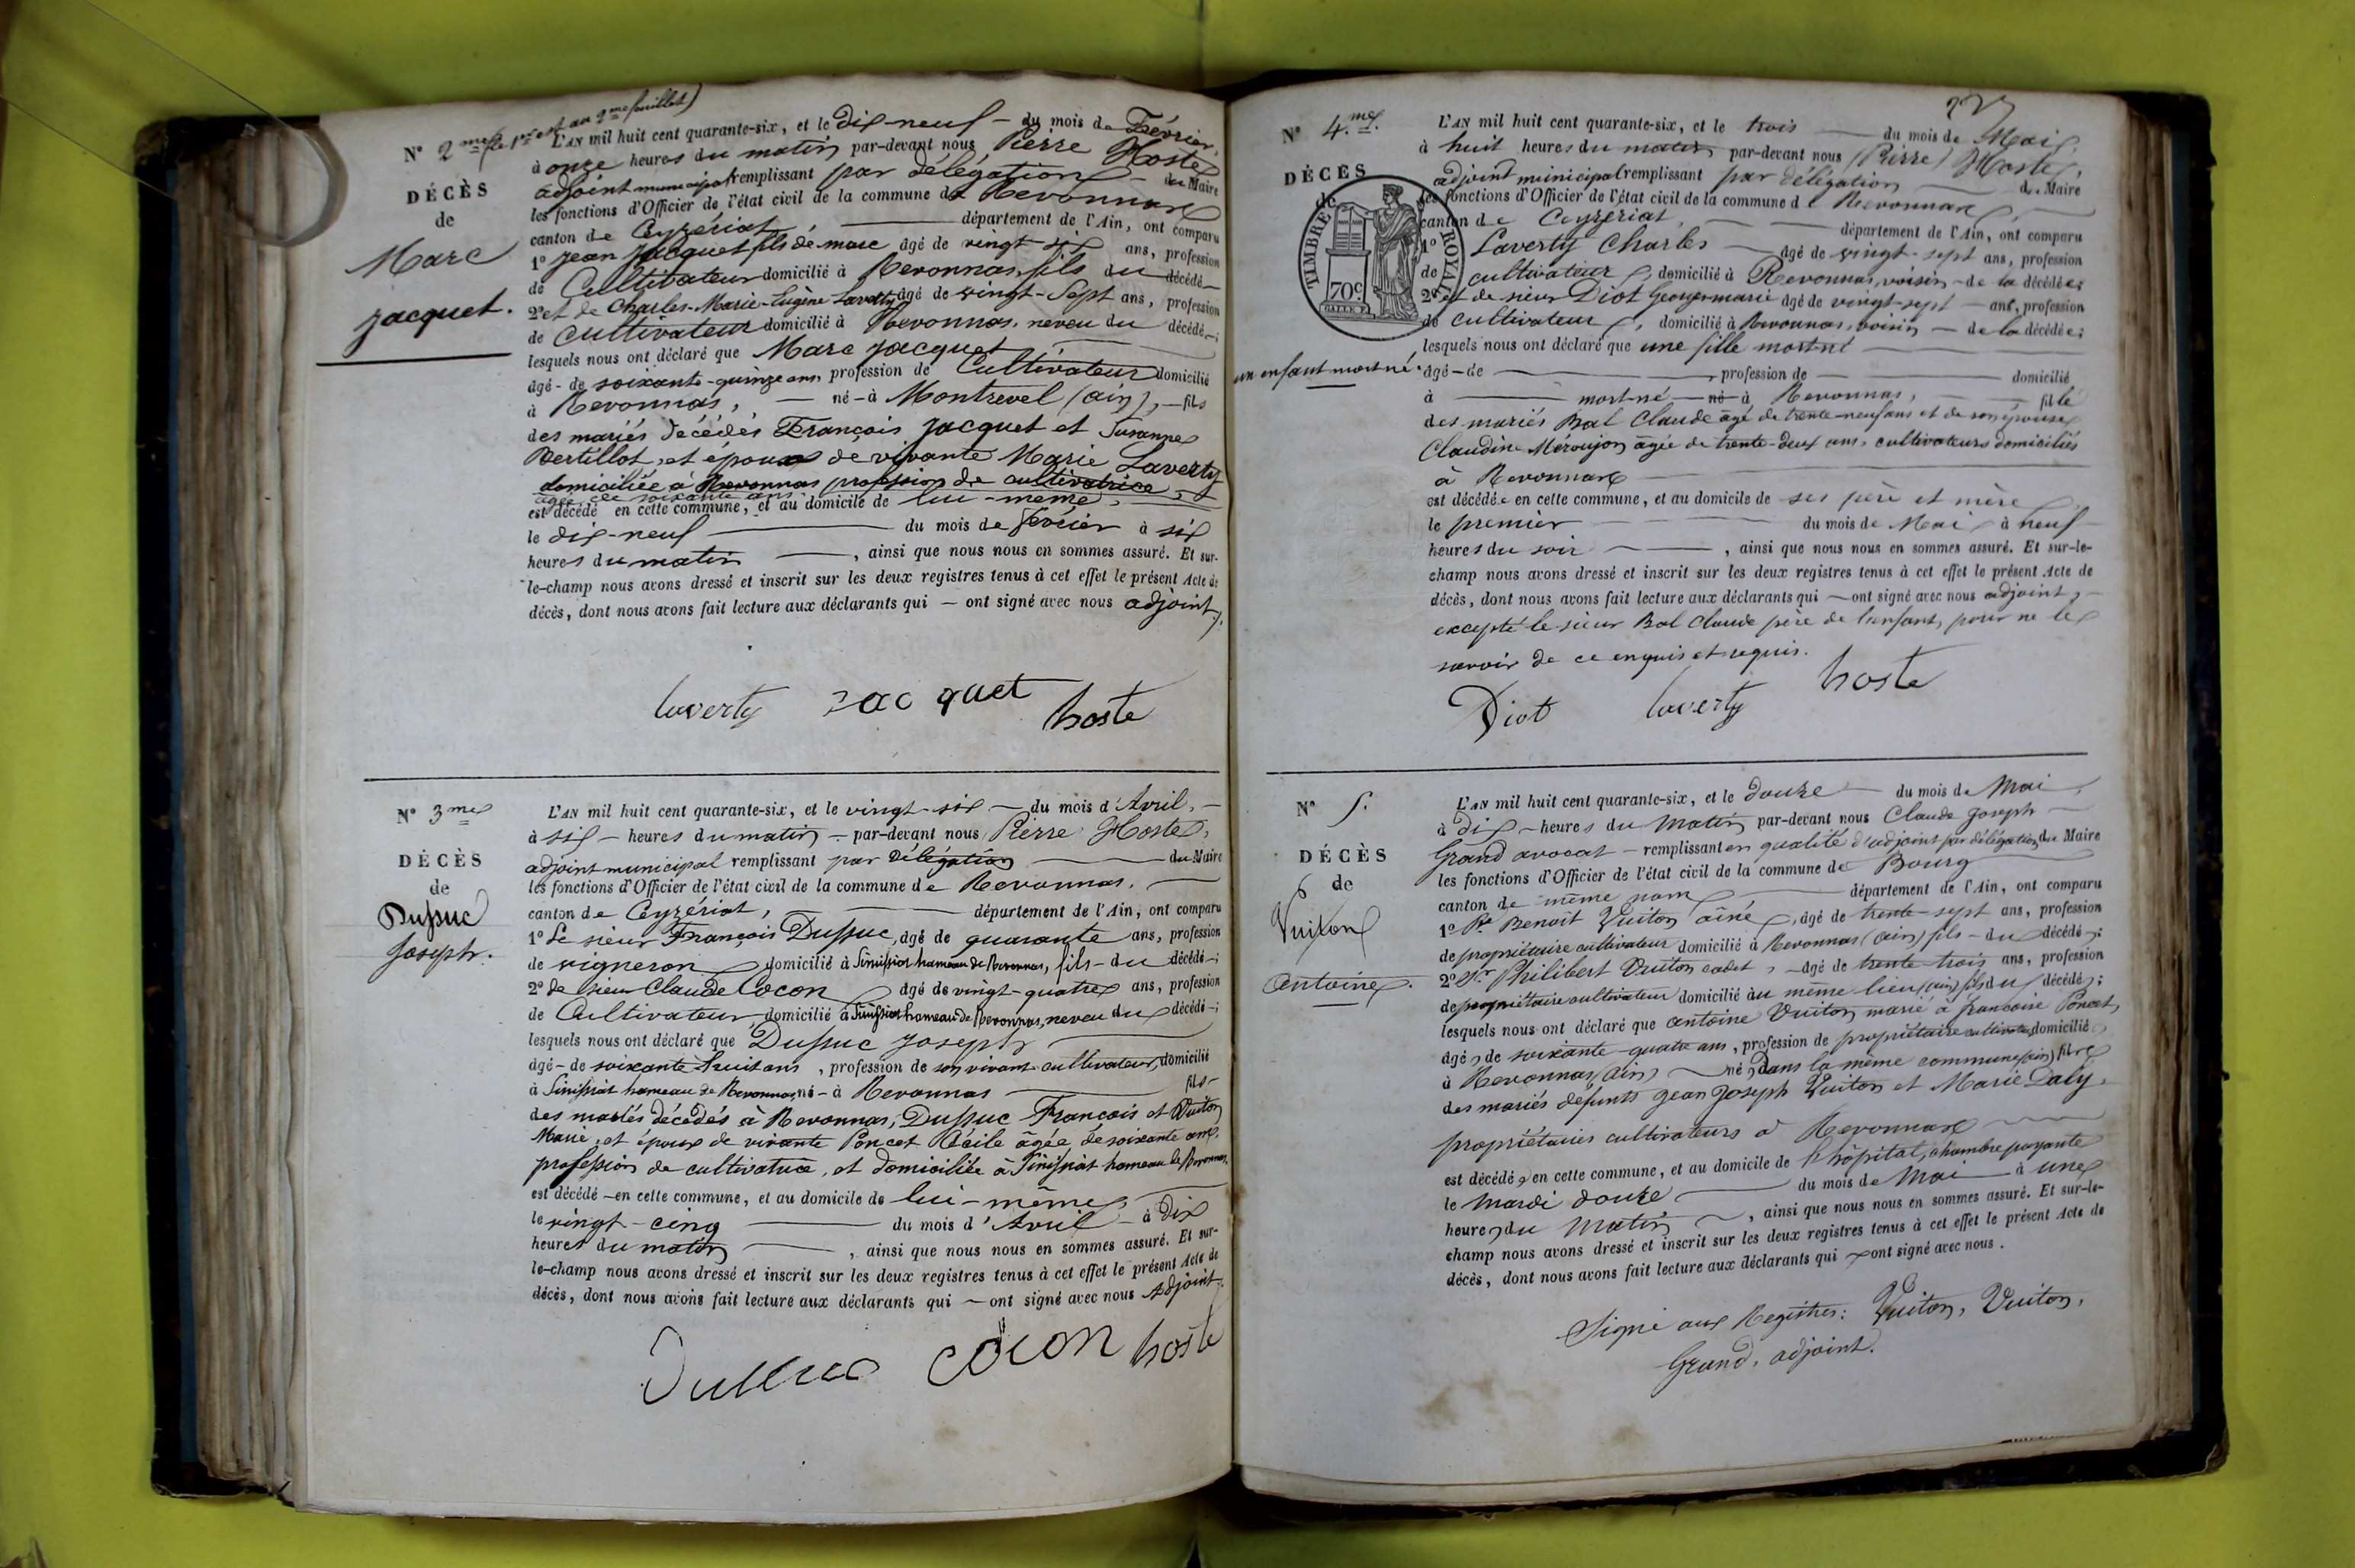 N° 2me (le 1er est au 2me feuillet)
DÉCÈS
de
Marc
Jacquet.
L'AN mil huit cent quarante-six, et le dix-neuf — du mois de Février,
à onze heures du matin par-devant nous Pierre Hoste
adjoint municipal remplissant par délégation — du Maire
les fonctions d'Officier de l'état civil de la commune de Revonnas
canton de Ceyzériat, — département de l'Ain, ont comparu
1° Jean Jacquet fils de marc âgé de vingt-six ans, profession
de Cultivateur domicilié à Revonnas, fils du décédé —
2° et de Charles-Marie-Eugène Laverty âgé de vingt-sept ans, profession
de cultivateur domicilié à Revonnas, neveu du décédé —;
lesquels nous ont déclaré que Marc Jacquet —
âgé - de soixante-quinze ans, profession de Cultivateur domicilié
à Revonnas, — né - à Montrevel (ain), — fils
des mariés décédés François Jacquet et Susanne
Bertillot, et époux de vivante Marie Laverty
domiciliée à Revonnas profession de cultivatrice,
âgée de soixante ans
est décédé en cette commune, et au domicile de lui-même,
le dix-neuf — du mois de février à six
heures du matin —, ainsi que nous nous en sommes assuré. Et sur-
le-champ nous avons dressé et inscrit sur les deux registres tenus à cet effet le présent Acte de
décès, dont nous avons fait lecture aux déclarants qui — ont signé avec nous adjoint.
laverty Jacquet hoste
N° 3me
DÉCÈS
de
Dussuc
Joseph.
L'AN mil huit cent quarante-six, et le vingt-six — du mois d'Avril, —
à six — heures du matin — par-devant nous Pierre Hoste,
adjoint municipal remplissant par délégation — du Maire
les fonctions d'Officier de l'état civil de la commune de Revonnas. —
canton de Ceyzériat, — département de l'Ain, ont comparu
1° Le sieur François Dussuc, âgé de quarante ans, profession
de vigneron domicilié à Sinissiat hameau de Revonnas, fils - du décédé —;
2° de sieur Claude Cocon âgé de vingt-quatre ans, profession
de Cultivateur, domicilié à Sinissiat hameau de Revonnas, neveu du décédé —;
lesquels nous ont déclaré que Dussuc Joseph —
âgé - de soixante huit ans, profession de son vivant cultivateur, domicilié
à Sinissiat hameau de Revonnas, né - à Revonnas — fils -
des mariés décédés à Revonnas, Dussuc François et Vuiton
Marie, et époux de vivante Poncet Cécile âgée de soixante ans,
profession de cultivatrice, et domiciliée à Sinissiat hameau de Revonnas,
est décédé — en cette commune, et au domicile de lui-même —
le vingt-cinq — du mois d'Avril — à dix
heures du matin —, ainsi que nous nous en sommes assuré. Et sur-
le-champ nous avons dressé et inscrit sur les deux registres tenus à cet effet le présent Acte de
décès, dont nous avons fait lecture aux déclarants qui — ont signé avec nous Adjoint.
Dussuc cocon hoste
N° 4.me
DÉCÈS
de
TIMBRE ROYAL
70c
un enfant mort né.
L'AN mil huit cent quarante-six, et le trois — du mois de Mai,
à huit heures du matin par-devant nous (Pierre) Hoste,
adjoint municipal remplissant par délégation — du Maire
les fonctions d'Officier de l'état civil de la commune de Revonnas
canton de Ceyzériat, — département de l'Ain, ont comparu
1° Laverty Charles — âgé de vingt-sept ans, profession
de cultivateur, domicilié à Revonnas, voisin — de la décédée;
2° et de sieur Diot Georges marie âgé de vingt-sept — ans, profession
de cultivateur, domicilié à Revonnas, voisin — de la décédée;
lesquels nous ont déclaré que une fille mort-né —
âgé - de —, profession de — domicilié
à — mort-né — né à Revonnas, — fille
des mariés Bal Claude âgé de trente-neuf ans et de son épouse
Claudine Méroujon âgée de trente-deux ans, cultivateurs domiciliés
à Revonnas —
est décédée en cette commune, et au domicile de ses père et mère
le premier — du mois de Mai à neuf
heures du soir —, ainsi que nous nous en sommes assuré. Et sur-le-
champ nous avons dressé et inscrit sur les deux registres tenus à cet effet le présent Acte de
décès, dont nous avons fait lecture aux déclarants qui — ont signé avec nous adjoint, —
excepté le sieur Bal Claude père de l'enfant, pour ne le
savoir de ce enquis et requis.
Diot laverty hoste
N° 5.
DÉCÈS
de
Vuiton
Antoine.
L'AN mil huit cent quarante-six, et le douze — du mois de Mai,
à dix — heures du Matin par-devant nous Claude Joseph —
Grand avocat — remplissant en qualité d'adjoint par délégation du Maire
les fonctions d'Officier de l'état civil de la commune de Bourg
canton de même nom — département de l'Ain, ont comparu
1° Pre Benoit Vuiton aîné, âgé de trente-sept ans, profession
de propriétaire cultivateur domicilié à Revonnas (ain) fils - du décédé;
2° Sr Philibert Vuiton cadet, — âgé de trente trois ans, profession
de propriétaire cultivateur domicilié au même lieu (ain) fils du décédé;
lesquels nous ont déclaré que antoine Vuiton marié à françoise Poncet,
âgé de soixante-quatre ans, profession de propriétaire cultivateur domicilié
à Revonnas (Ain) — né dans la même commune (ain) fils
des mariés défunts Jean Joseph Vuiton et Marie Daly,
propriétaires cultivateurs à Revonnas —
est décédé en cette commune, et au domicile de l'hôpital, chambre payante
le mardi douze — du mois de Mai — à une
heure du Matin —, ainsi que nous nous en sommes assuré. Et sur-le-
champ nous avons dressé et inscrit sur les deux registres tenus à cet effet le présent Acte de
décès, dont nous avons fait lecture aux déclarants qui ont signé avec nous.
Signé aux Registres: Vuiton, Vuiton,
Grand, adjoint.